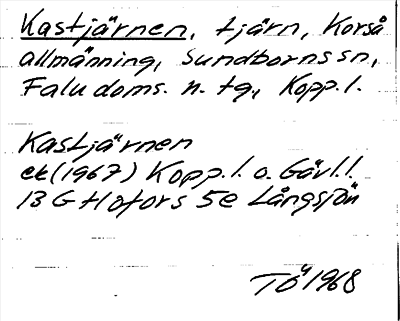 Kastjärnen, tjärn, Korså
allmänning, Sundborns sn,
Falu doms. n. tg., Kopp.l.
Kastjärnen
ek (1967) Kopp.l. o. Gävl.l.
13 G Hofors 5e Långsjön
TÖ 1968